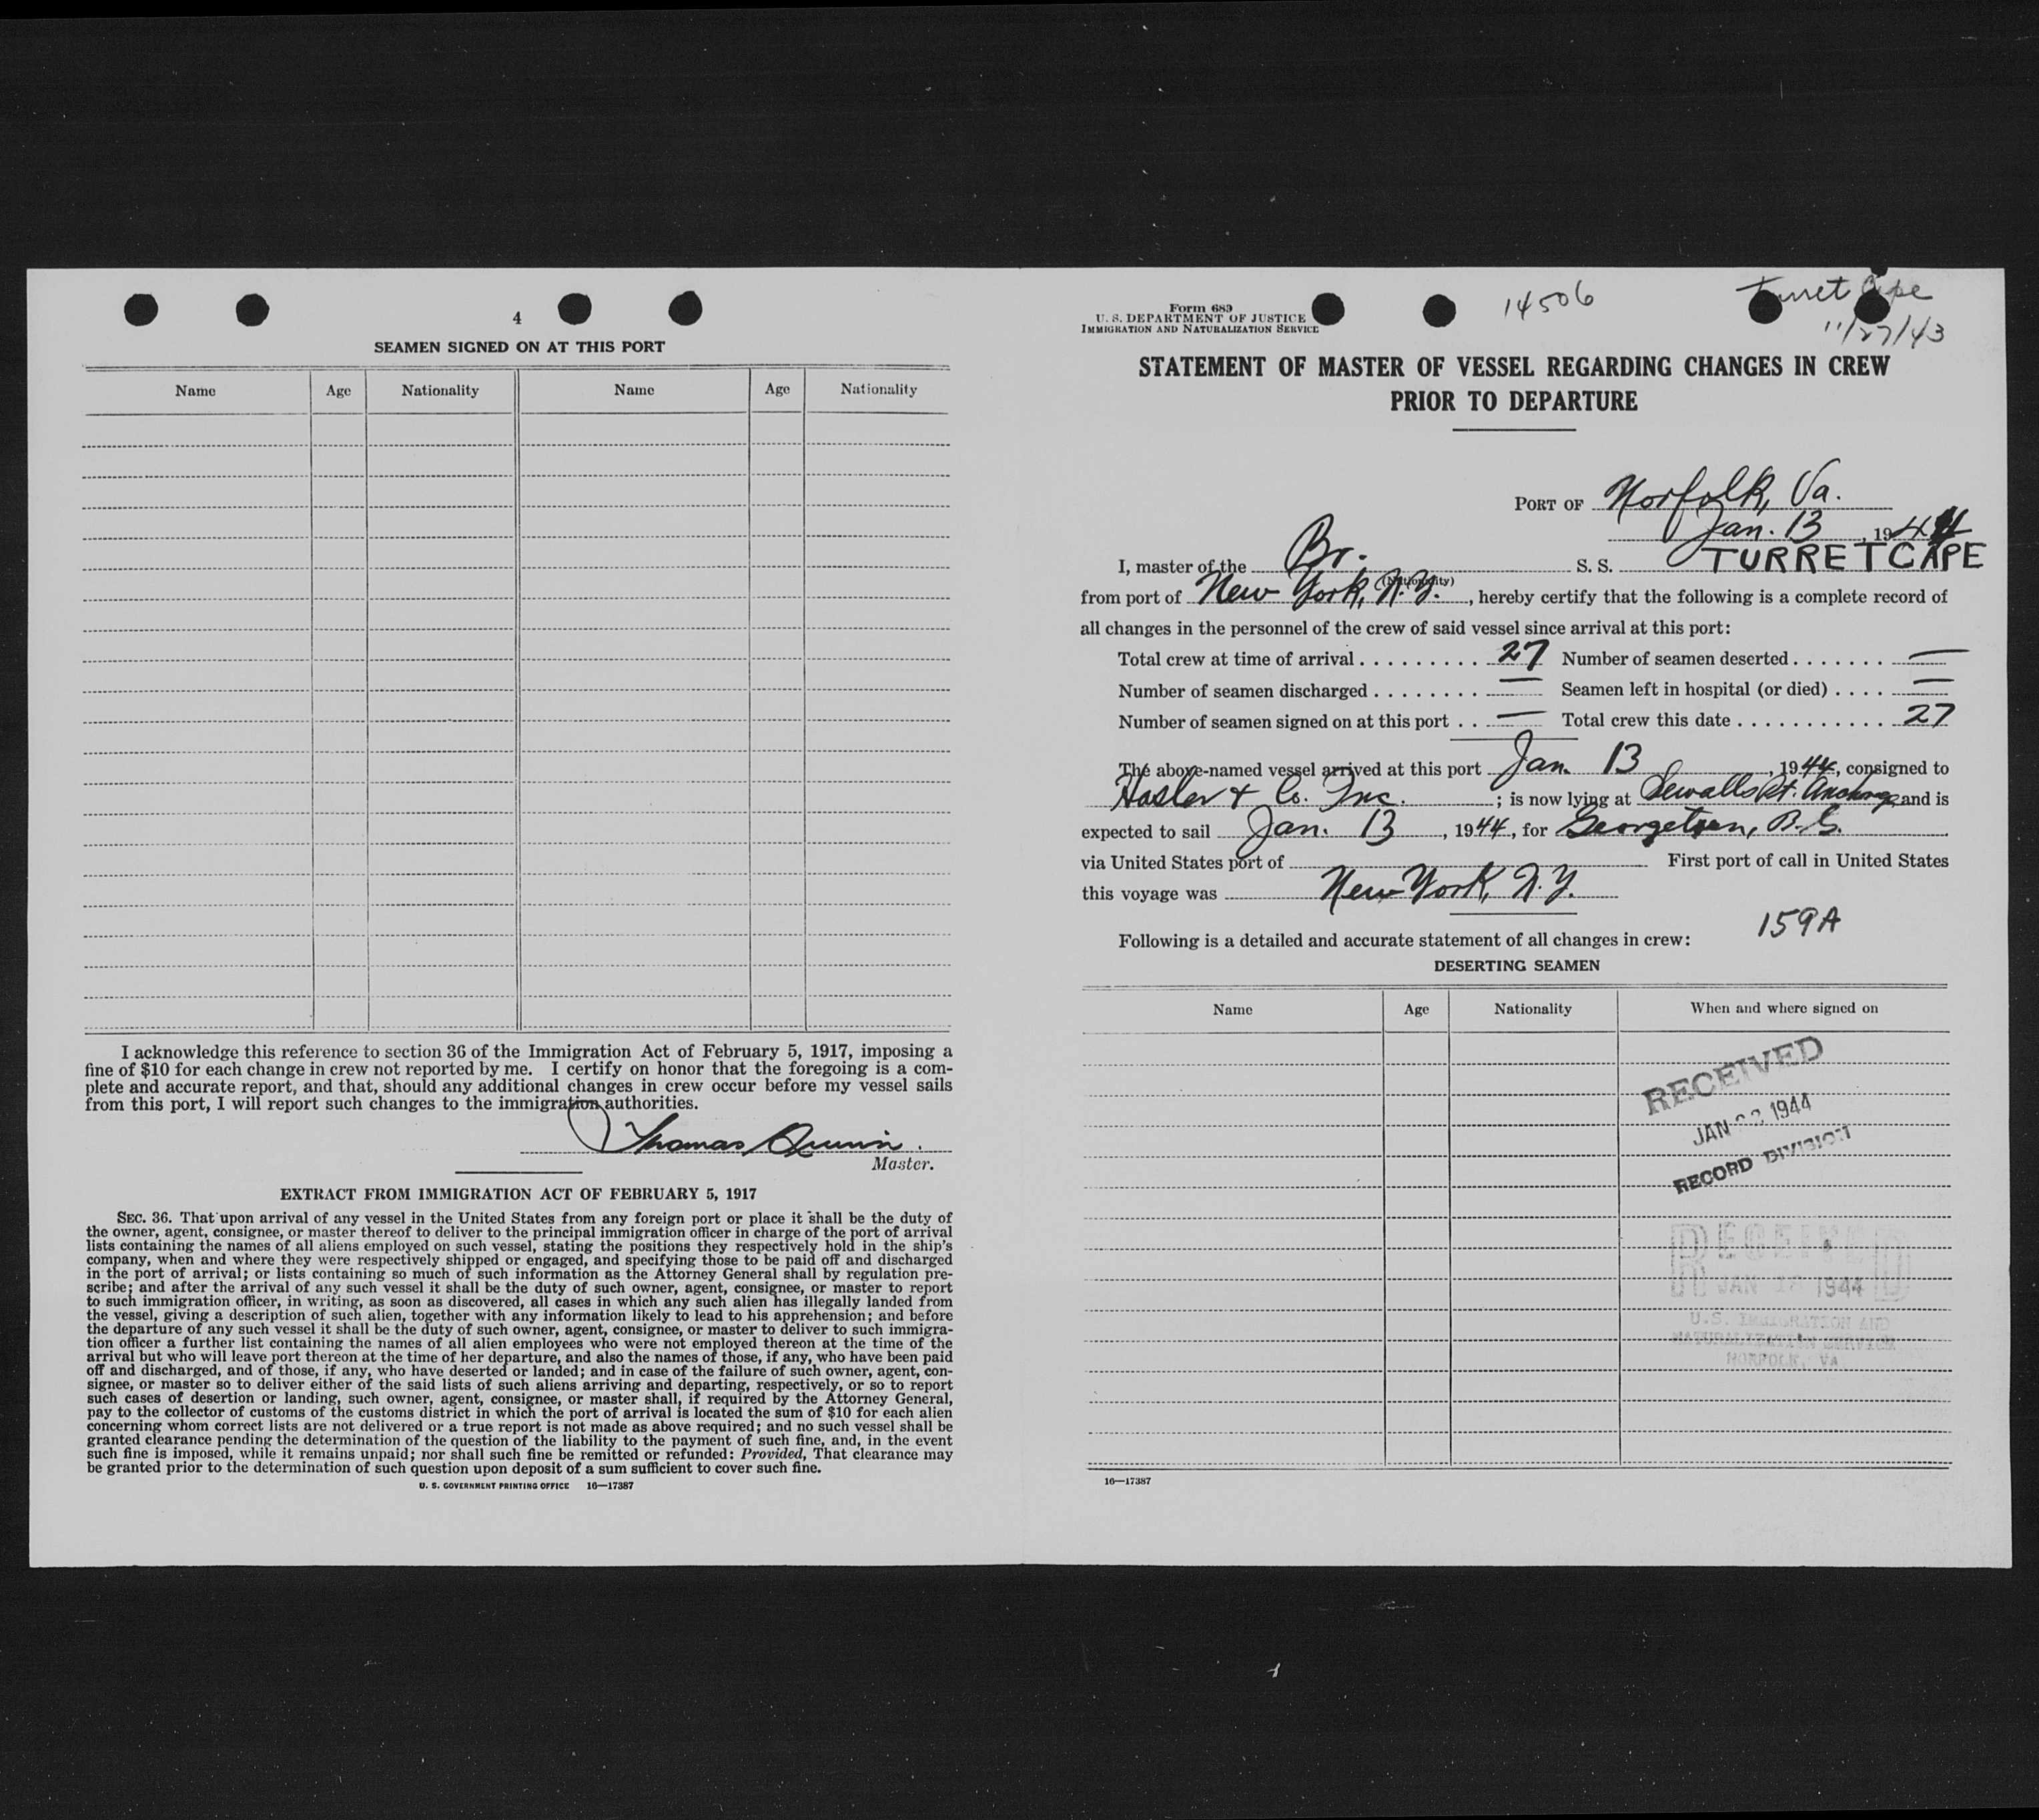 4
SEAMEN SIGNED ON AT THIS PORT
Name Age Nationality Name Age Nationality
I acknowledge this reference to section 36 of the Immigration Act of February 5, 1917, imposing a
fine of $10 for each change in crew not reported by me. I certify on honor that the foregoing is a com-
plete and accurate report, and that, should any additional changes in crew occur before my vessel sails
from this port, I will report such changes to the immigration authorities.
Thomas Quinn.
Master.
EXTRACT FROM IMMIGRATION ACT OF FEBRUARY 5, 1917
SEC. 36. That upon arrival of any vessel in the United States from any foreign port or place it shall be the duty of
the owner, agent, consignee, or master thereof to deliver to the principal immigration officer in charge of the port of arrival
lists containing the names of all aliens employed on such vessel, stating the positions they respectively hold in the ship's
company, when and where they were respectively shipped or engaged, and specifying those to be paid off and discharged
in the port of arrival; or lists containing so much of such information as the Attorney General shall by regulation pre-
scribe; and after the arrival of any such vessel it shall be the duty of such owner, agent, consignee, or master to report
to such immigration officer, in writing, as soon as discovered, all cases in which any such alien has illegally landed from
the vessel, giving a description of such alien, together with any information likely to lead to his apprehension; and before
the departure of any such vessel it shall be the duty of such owner, agent, consignee, or master to deliver to such immigra-
tion officer a further list containing the names of all alien employees who were not employed thereon at the time of the
arrival but who will leave port thereon at the time of her departure, and also the names of those, if any, who have been paid
off and discharged, and of those, if any, who have deserted or landed; and in case of the failure of such owner, agent, con-
signee, or master so to deliver either of the said lists of such aliens arriving and departing, respectively, or so to report
such cases of desertion or landing, such owner, agent, consignee, or master shall, if required by the Attorney General,
pay to the collector of customs of the customs district in which the port of arrival is located the sum of $10 for each alien
concerning whom correct lists are not delivered or a true report is not made as above required; and no such vessel shall be
granted clearance pending the determination of the question of the liability to the payment of such fine, and, in the event
such fine is imposed, while it remains unpaid; nor shall such fine be remitted or refunded: Provided, That clearance may
be granted prior to the determination of such question upon deposit of a sum sufficient to cover such fine.
U. S. GOVERNMENT PRINTING OFFICE 16—17387
Form 689
U. S. DEPARTMENT OF JUSTICE
IMMIGRATION AND NATURALIZATION SERVICE
14506
Turret Cape
11/27/43
STATEMENT OF MASTER OF VESSEL REGARDING CHANGES IN CREW
PRIOR TO DEPARTURE
PORT OF Norfolk, Va.
Jan. 13, 1944
I, master of the Br. S. S. TURRET CAPE
(Nationality)
from port of New York, N.Y., hereby certify that the following is a complete record of
all changes in the personnel of the crew of said vessel since arrival at this port:
Total crew at time of arrival . . . . . . . . . 27 Number of seamen deserted . . . . . . . —
Number of seamen discharged . . . . . . . . — Seamen left in hospital (or died) . . . . —
Number of seamen signed on at this port . . — Total crew this date . . . . . . . . . . . . 27
The above-named vessel arrived at this port Jan. 13, 1944, consigned to
Hasler & Co. Inc. ; is now lying at Sewalls Pt. Anchorage and is
expected to sail Jan. 13, 1944, for Georgetown, B.G.
via United States port of First port of call in United States
this voyage was New York, N.Y.
159A
Following is a detailed and accurate statement of all changes in crew:
DESERTING SEAMEN
Name Age Nationality When and where signed on
RECEIVED
JAN 1944
RECORD DIVISION
RECEIVED
JAN 1944
U.S. IMMIGRATION AND
NATURALIZATION SERVICE
NORFOLK, VA
16—17387